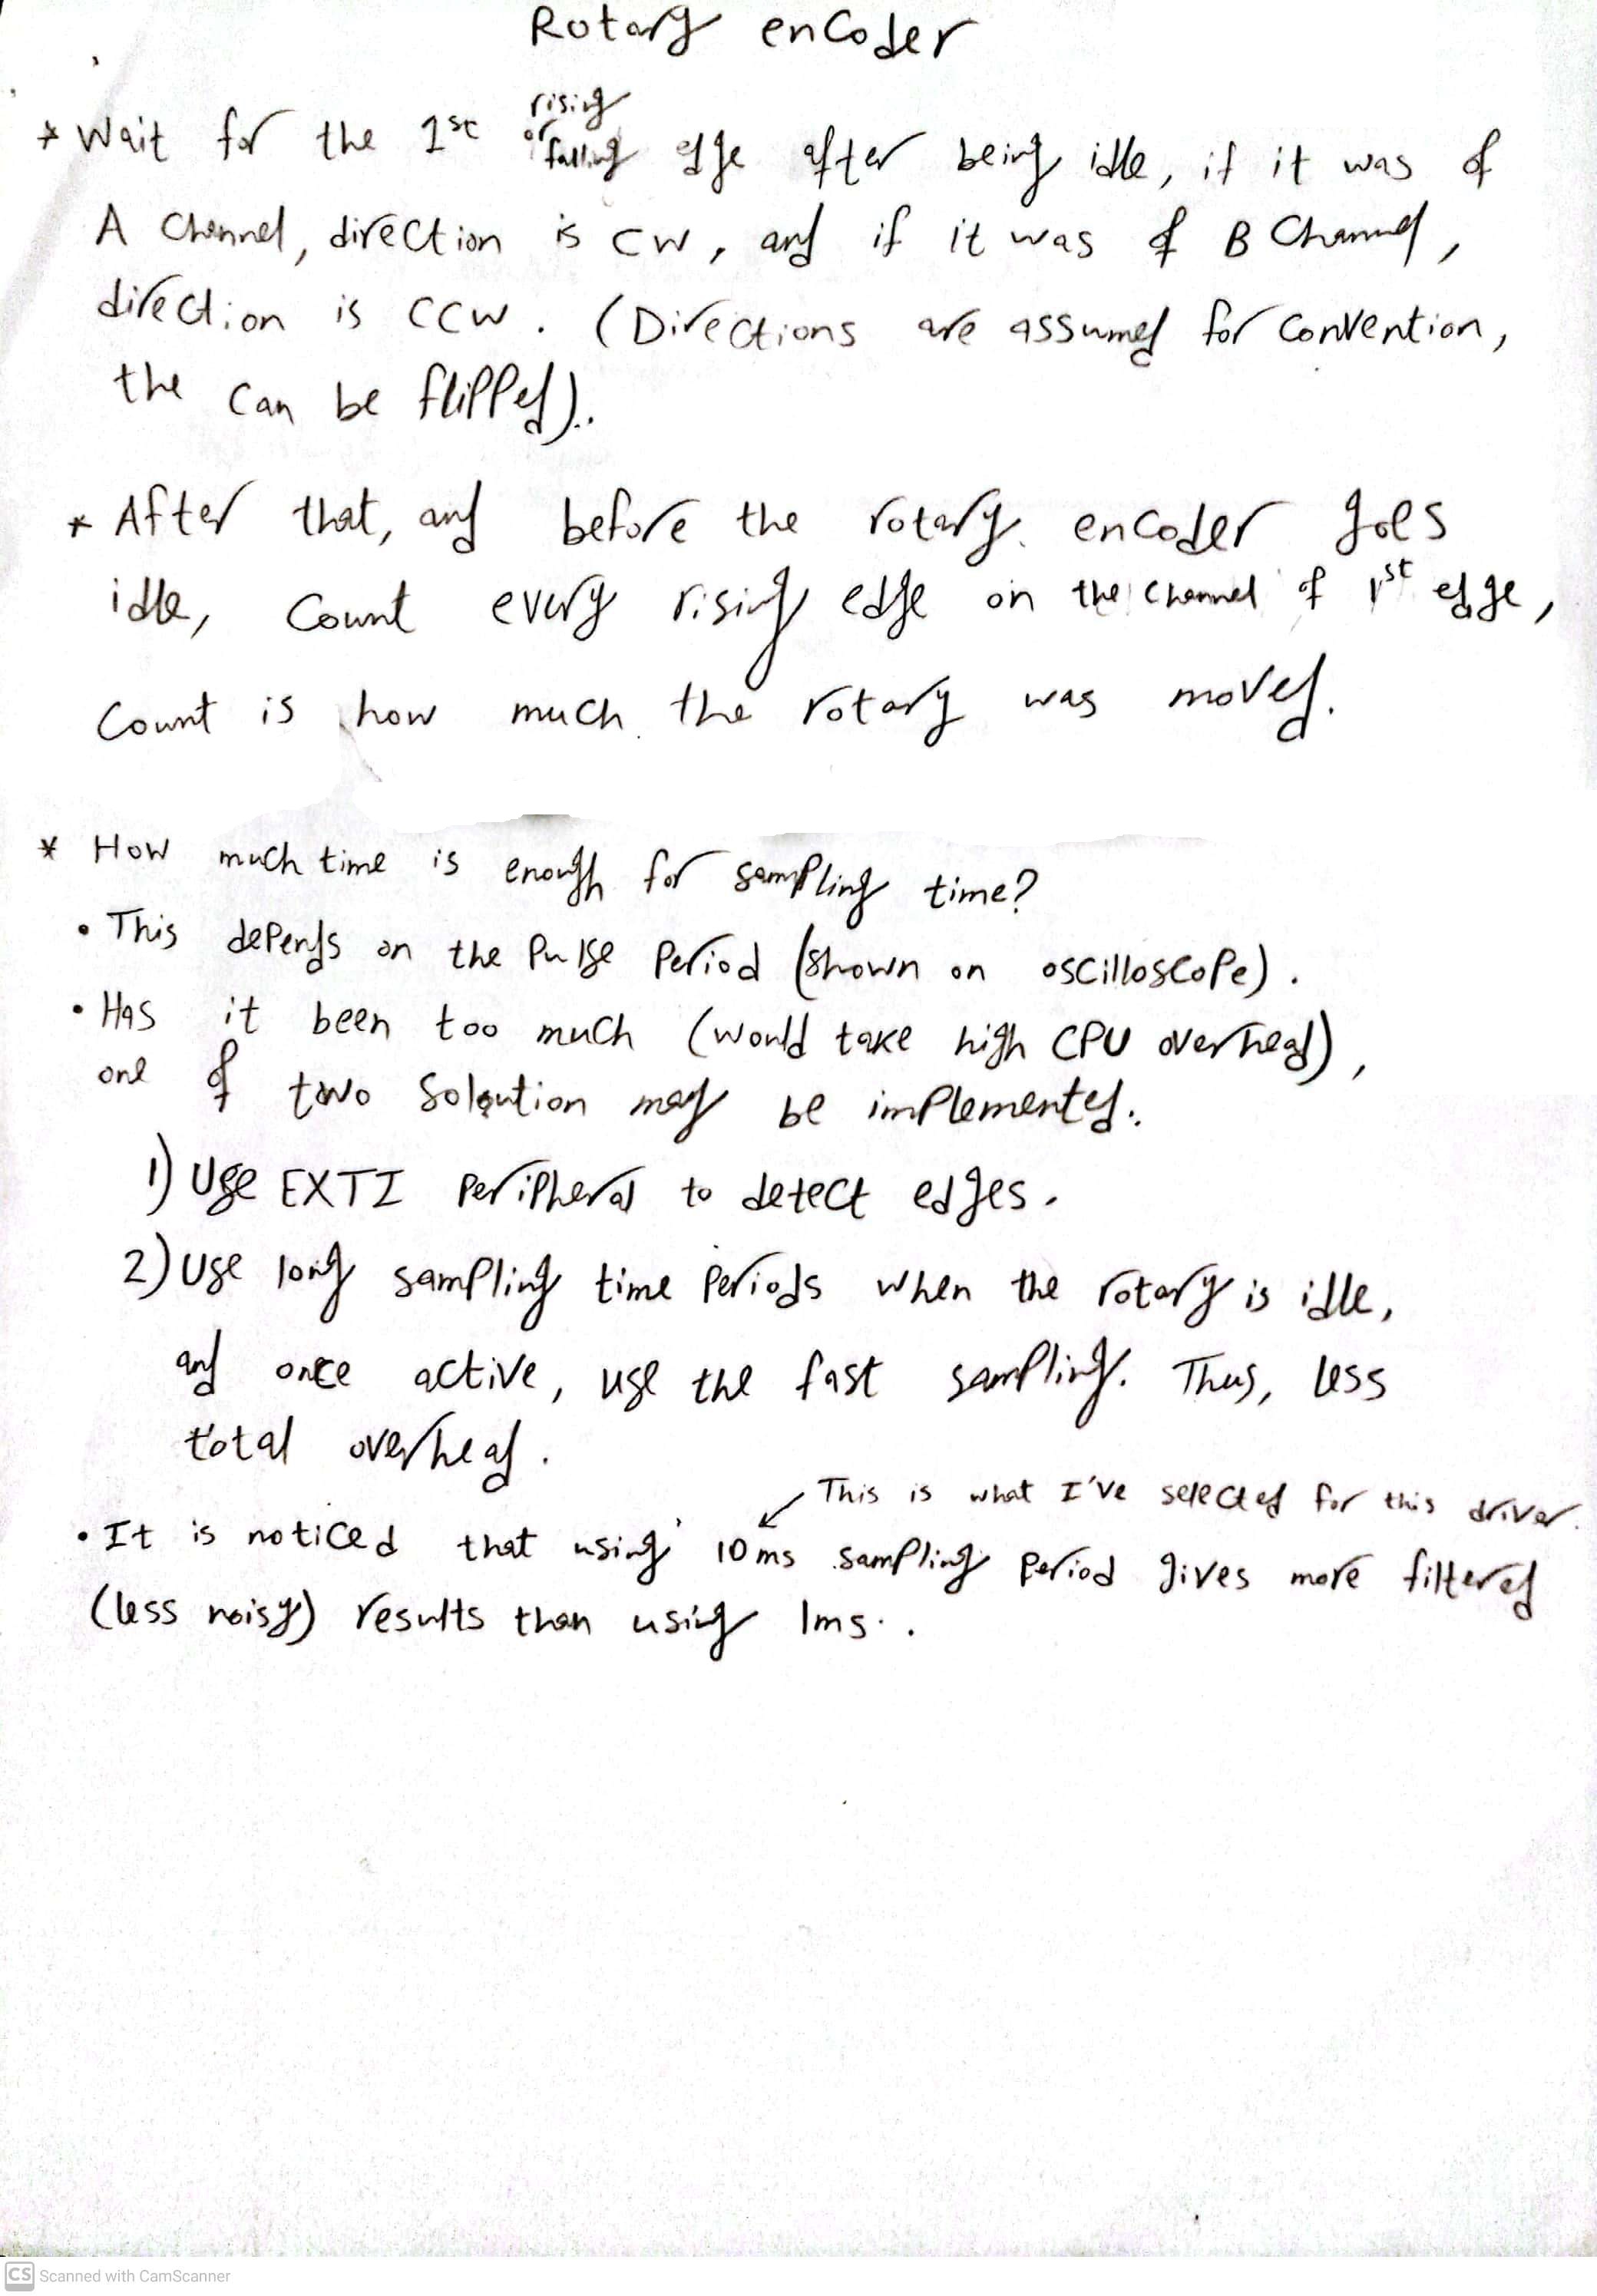 Rotary encoder
* Wait for the 1st rising or falling edge after being idle, if it was of
A Channel, direction is CW, and if it was of B Channel,
direction is CCW. (Directions are assumed for convention,
the can be flipped).
* After that, and before the rotary encoder goes
idle, Count every rising edge on the channel of 1st edge,
Count is how much the rotary was moved.
* How much time is enough for sampling time?
• This depends on the Pulse Period (shown on oscilloscope).
• Has it been too much (would take high CPU overhead),
one of two Soloution may be implemented.
1) Use EXTI Peripheral to detect edges.
2) Use long sampling time Periods when the rotary is idle,
and once active, use the fast sampling. Thus, less
total overhead.
This is what I've selected for this driver.
• It is noticed that using 10ms sampling Period gives more filtered
(less noisy) results than using 1ms.
CS Scanned with CamScanner